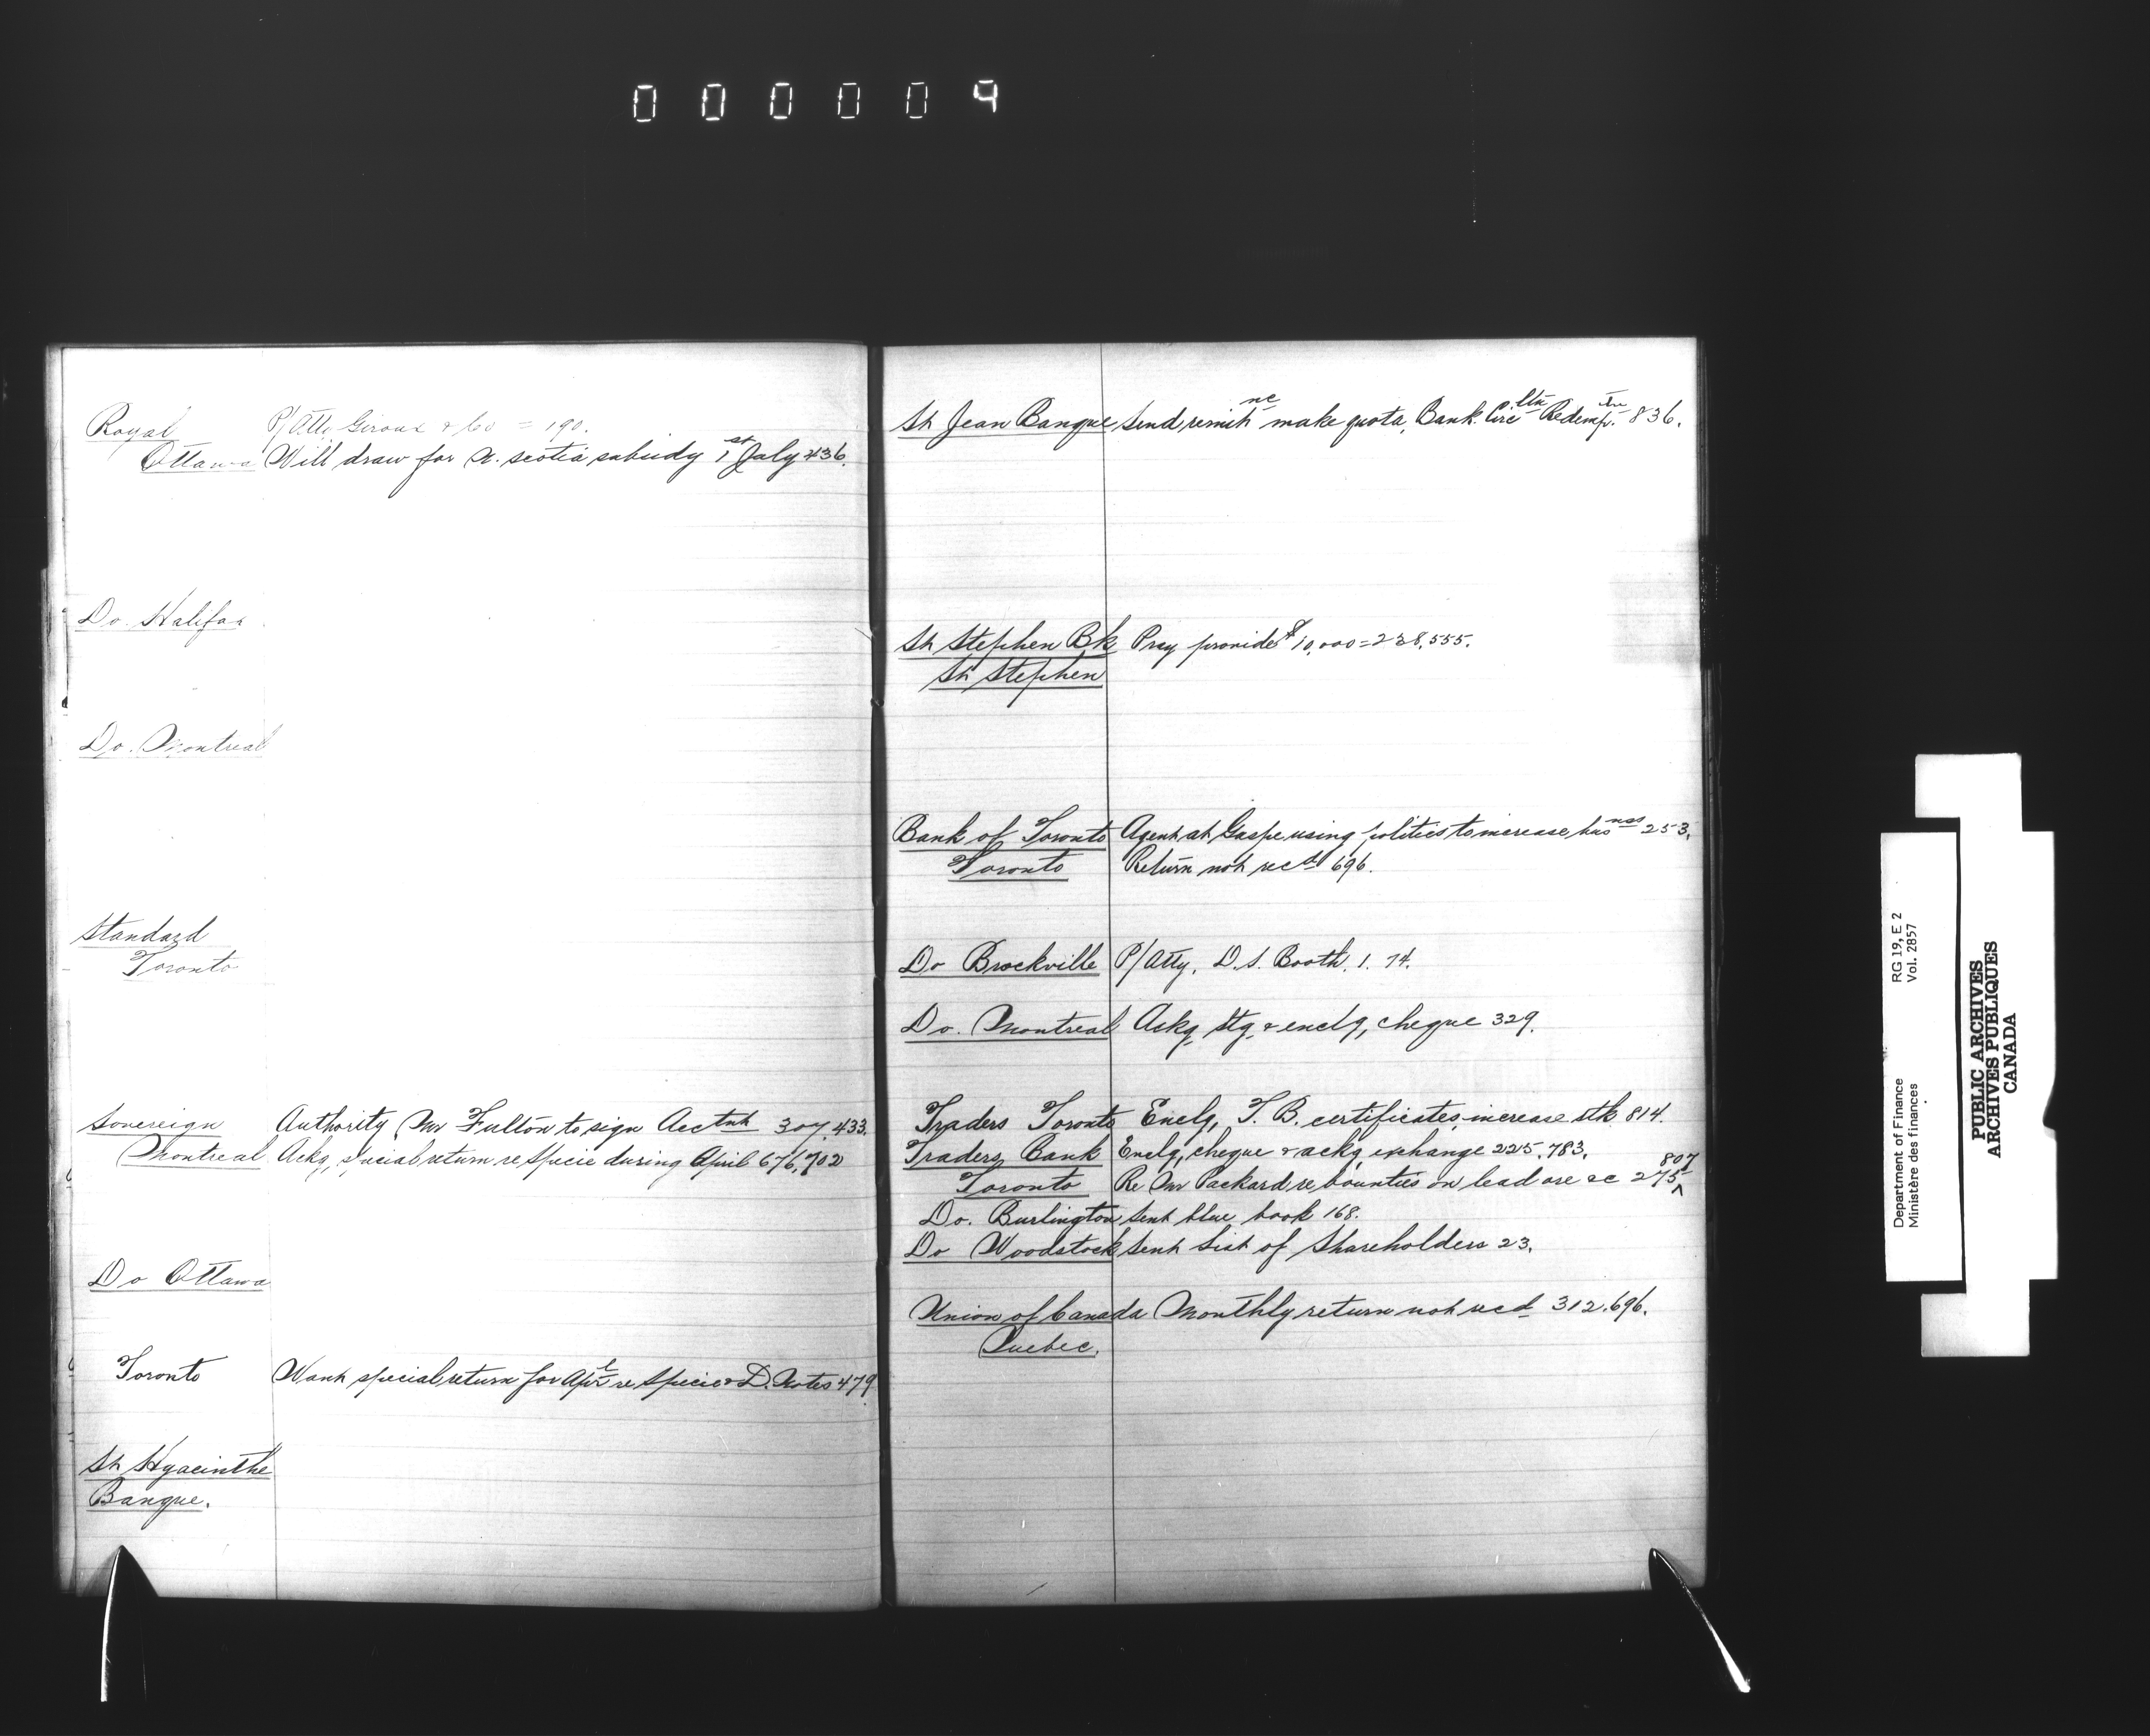 000009
Royal P/Atty Giroux & Co = 190.
Ottawa Will draw for N. Scotia subsidy 1st July 436.
Do. Halifax
Do. Montreal
Standard
Toronto
Sovereign Authority Mr Fulton to sign Acctnt 307, 433.
Montreal Ackg, special return re specie during April 676, 702
Do Ottawa
Toronto Want special return for Aprl re specie & D. Notes 479
St Hyacinthe
Banque.
St Jean Banque Send remitnce make quota, Bank Circltn Redemptn 836.
St Stephen Bk Pray provide $10,000 = 238, 555.
St Stephen
Bank of Toronto Agent at Gaspe using politics to increase busnss 253.
Toronto Return not recd 696.
Do Brockville P/Atty, D.S. Booth, 1. 74.
Do. Montreal Ackg stg & enclg, cheque 329.
Traders Toronto Enclg, T.B. certificates, increase stk 814.
Traders Bank Enclg, cheque & ackg exchange 225, 783.
Toronto Re Mr Packard re bounties on lead ore &c 275 807
Do. Burlington Sent blue book 168.
Do Woodstock Sent List of Shareholders 23.
Union of Canada Monthly return not recd 312. 696.
Quebec.
Department of Finance RG 19, E 2
Ministère des finances Vol. 2857
PUBLIC ARCHIVES
ARCHIVES PUBLIQUES
CANADA